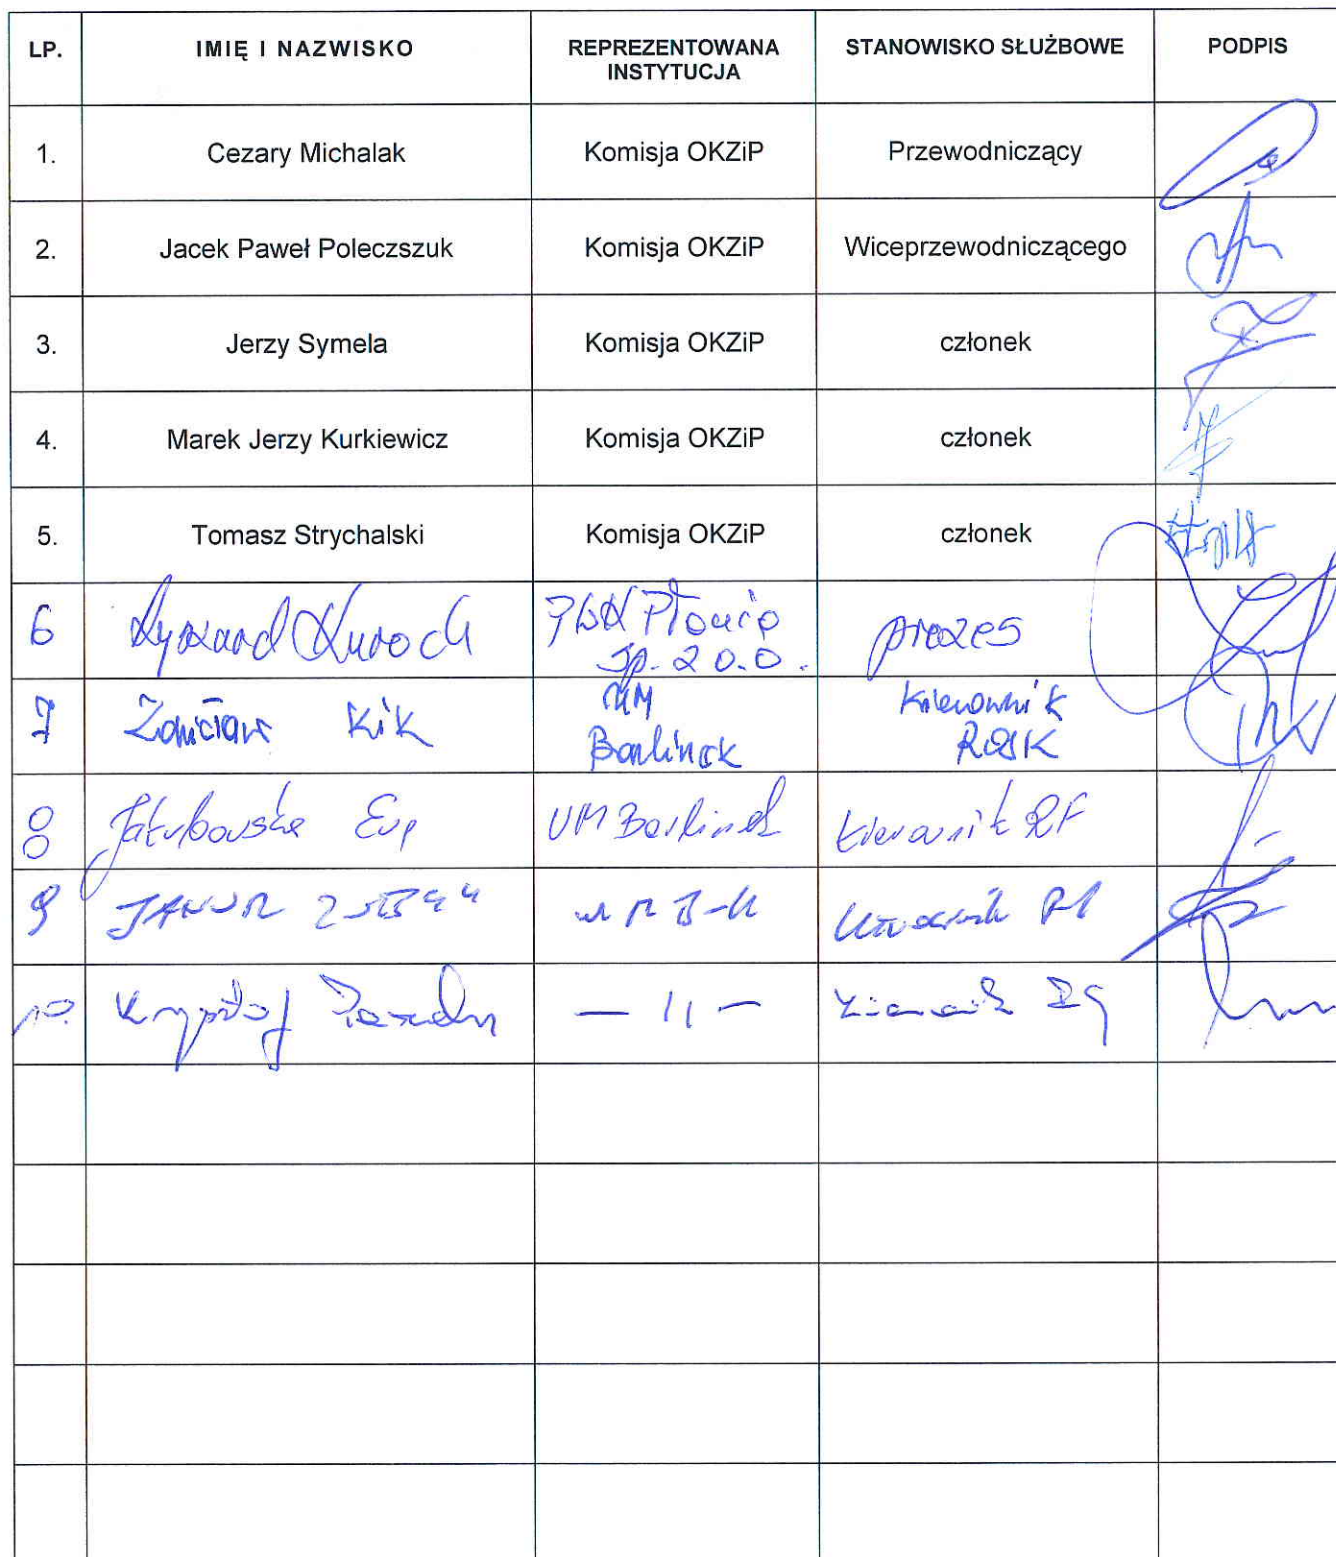 LP. IMIĘ I NAZWISKO REPREZENTOWANA INSTYTUCJA STANOWISKO SŁUŻBOWE PODPIS
1. Cezary Michalak Komisja OKZiP Przewodniczący
2. Jacek Paweł Poleczszuk Komisja OKZiP Wiceprzewodniczącego
3. Jerzy Symela Komisja OKZiP członek
4. Marek Jerzy Kurkiewicz Komisja OKZiP członek
5. Tomasz Strychalski Komisja OKZiP członek
6 Ryszard PWK Płonia Sp. z o.o. prezes
7 Kik UM Barlinek Kierownik
8 Jakubowska Ewa UM Barlinek kierownik RF
9 JANUSZ
10. Krzysztof — 11 —